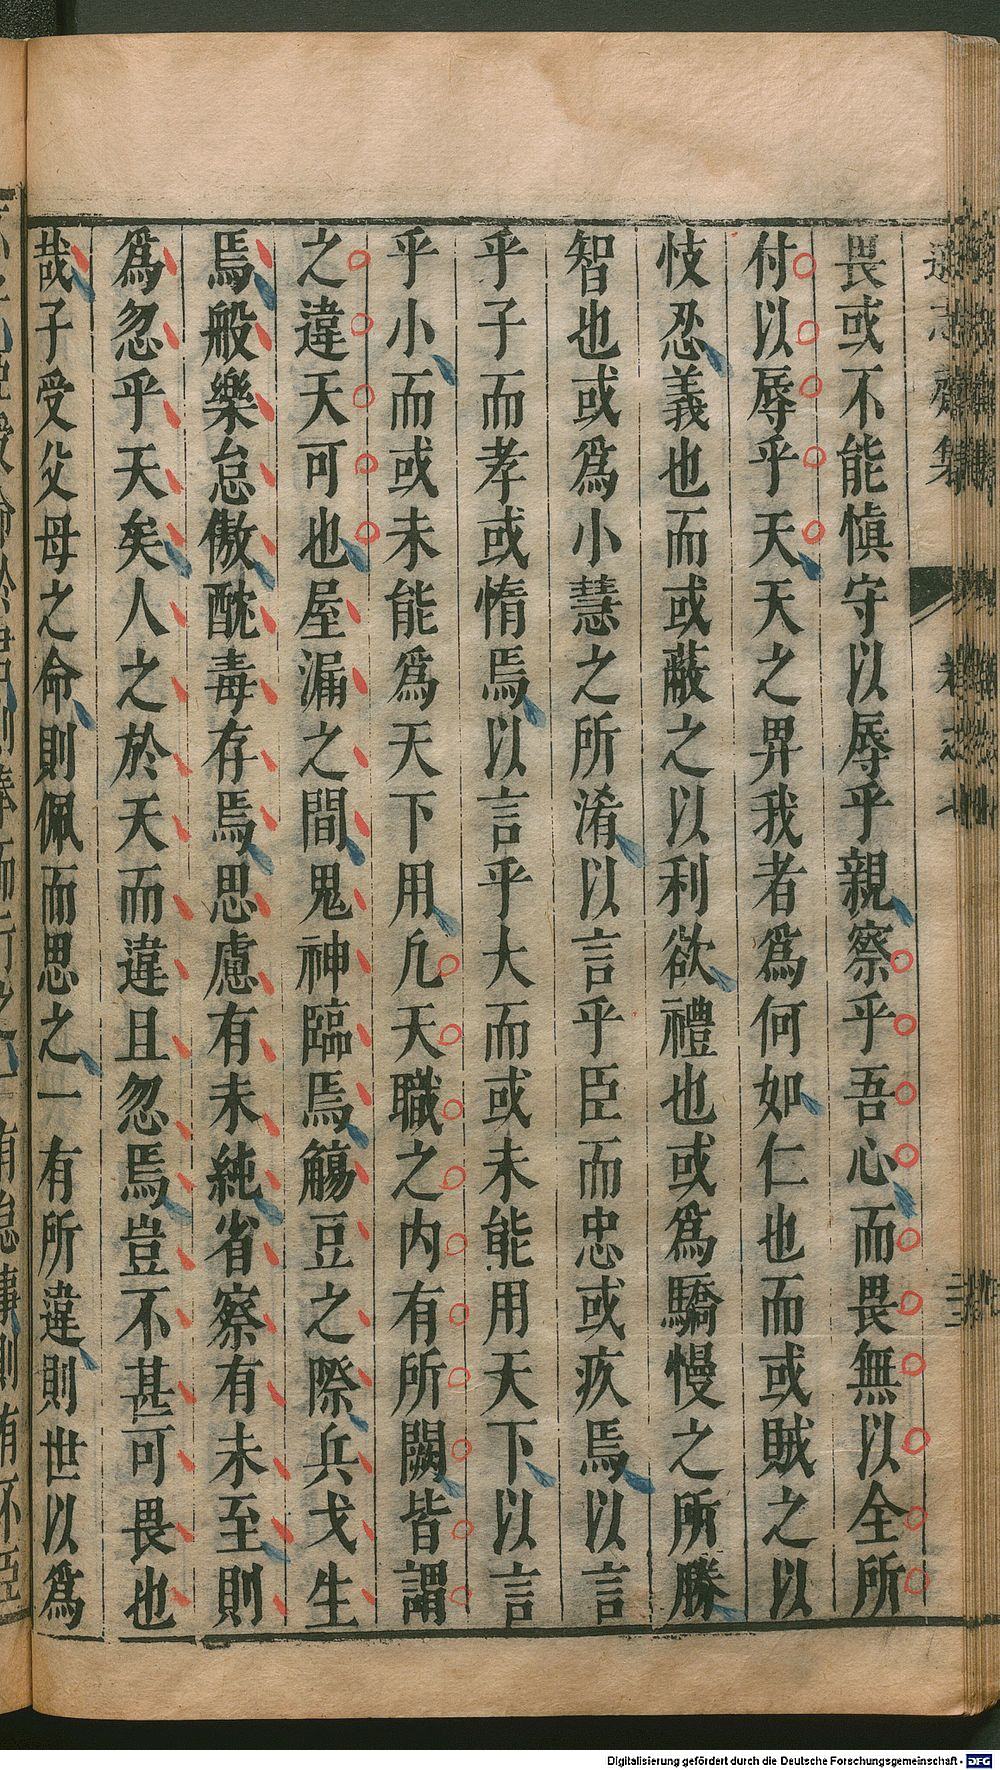 畏或不能慎守以辱乎親察乎吾心而畏無以全所
付以辱乎天天之畀我者爲何如仁也而或賊之以
忮忍義也而或蔽之以利欲禮也或爲驕慢之所勝
智也或爲小慧之所淆以言乎臣而忠或疚焉以言
乎子而孝或惰焉以言乎大而或未能用天下以言
乎小而或未能爲天下用凢天職之内有所闕皆謂
之違天可也屋漏之間鬼神臨焉觴豆之際兵戈生
焉般樂怠傲酖毒存焉思慮有未純省察有未至則
爲忽乎天矣人之於天而違且忽焉豈不甚可畏也
哉子受父母之命則佩而思之一有所違則世以爲
遜志齋集
卷之七
Digitalisierung gefördert durch die Deutsche Forschungsgemeinschaft - DFG